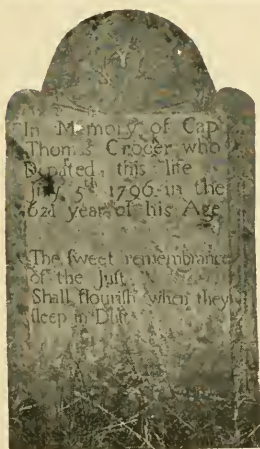 In Memory of Cap
Thomas Crocker who
Departed this life
July 5th 1796 in the
62d year of his Age
The ſweet remembrance
of the Juſt
Shall flouriſh when they
ſleep in Duſt